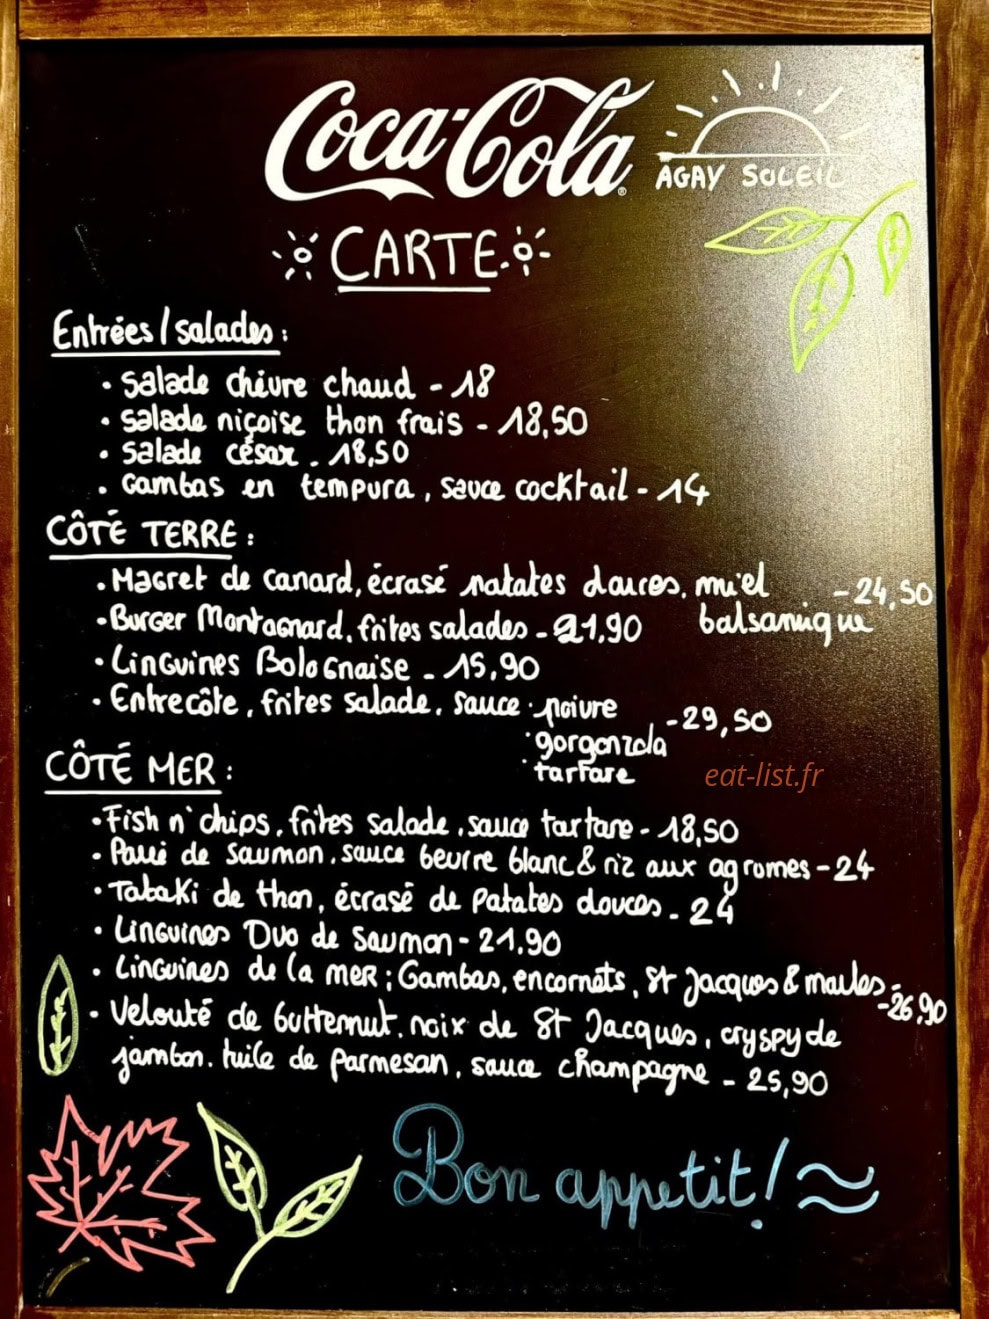 Coca-Cola
AGAY SOLEIL
CARTE
Entrées / salades :
• Salade chèvre chaud - 18
• Salade niçoise thon frais - 18,50
• Salade césar . 18,50
• Gambas en tempura , sauce cocktail - 14
CÔTÉ TERRE :
• Magret de canard, écrasé patates douces, miel - 24,50
balsamique
• Burger Montagnard, frites salades - 21,90
• Linguines Bolognaise - 15,90
• Entrecôte , frites salade , sauce · poivre
· gorgonzola , - 29,50
· tartare
eat-list.fr
CÔTÉ MER :
• Fish n' chips, frites salade , sauce tartare - 18,50
• Pavé de saumon , sauce beurre blanc & riz aux agrumes - 24
• Tataki de thon, écrasé de patates douces - 24
• Linguines Duo de saumon - 21,90
• Linguines de la mer ; Gambas, encornets , St Jacques & moules - 26,90
• Velouté de butternut, noix de St Jacques , cryspy de
jambon, tuile de parmesan , sauce champagne - 25,90
Bon appetit !